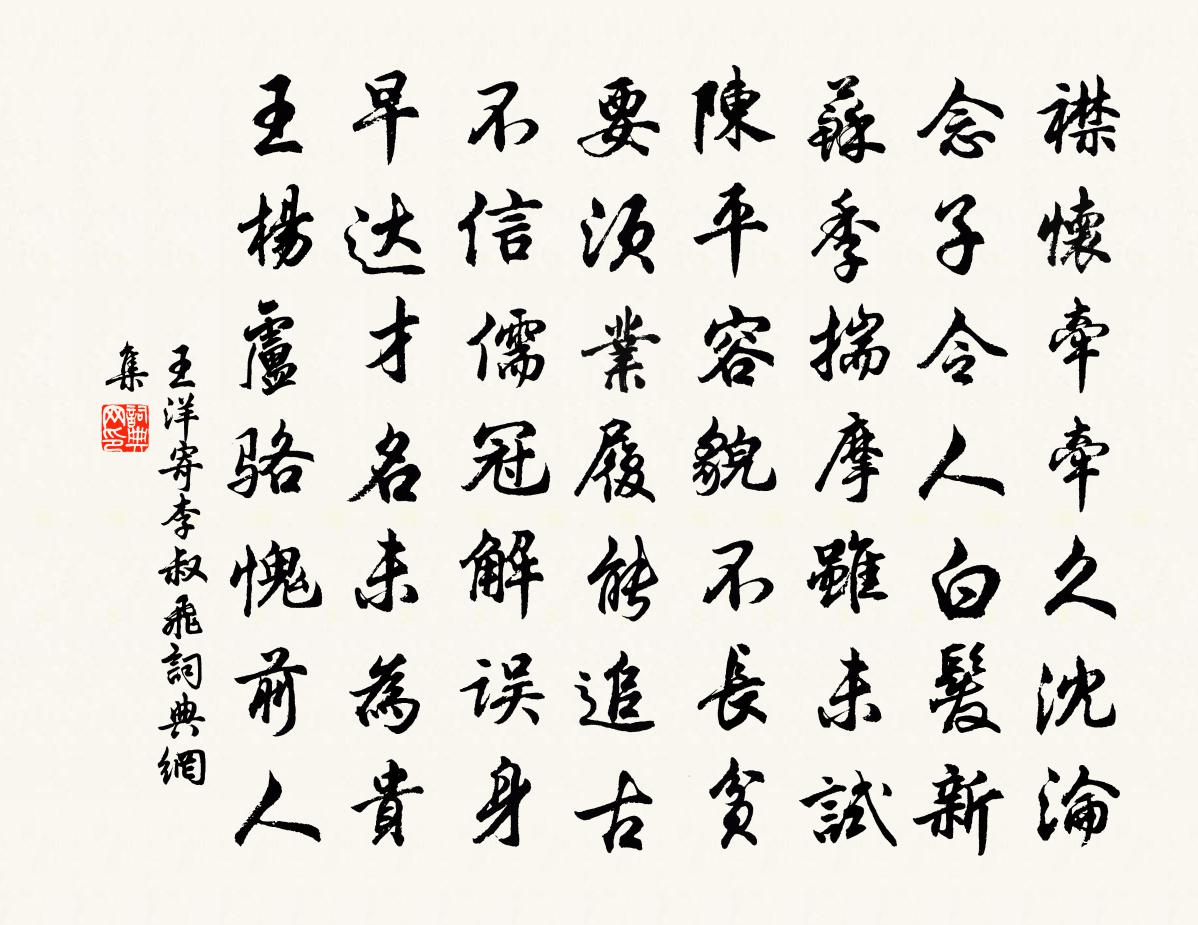 襟懷牽牽久沈淪
念子令人白髮新
蘇季揣摩雖未試
陳平容貌不長貧
要須業履能追古
不信儒冠解误身
早达才名未為貴
王楊盧骆愧前人
王洋寄李叔飛詞典網
集
詞典
网印